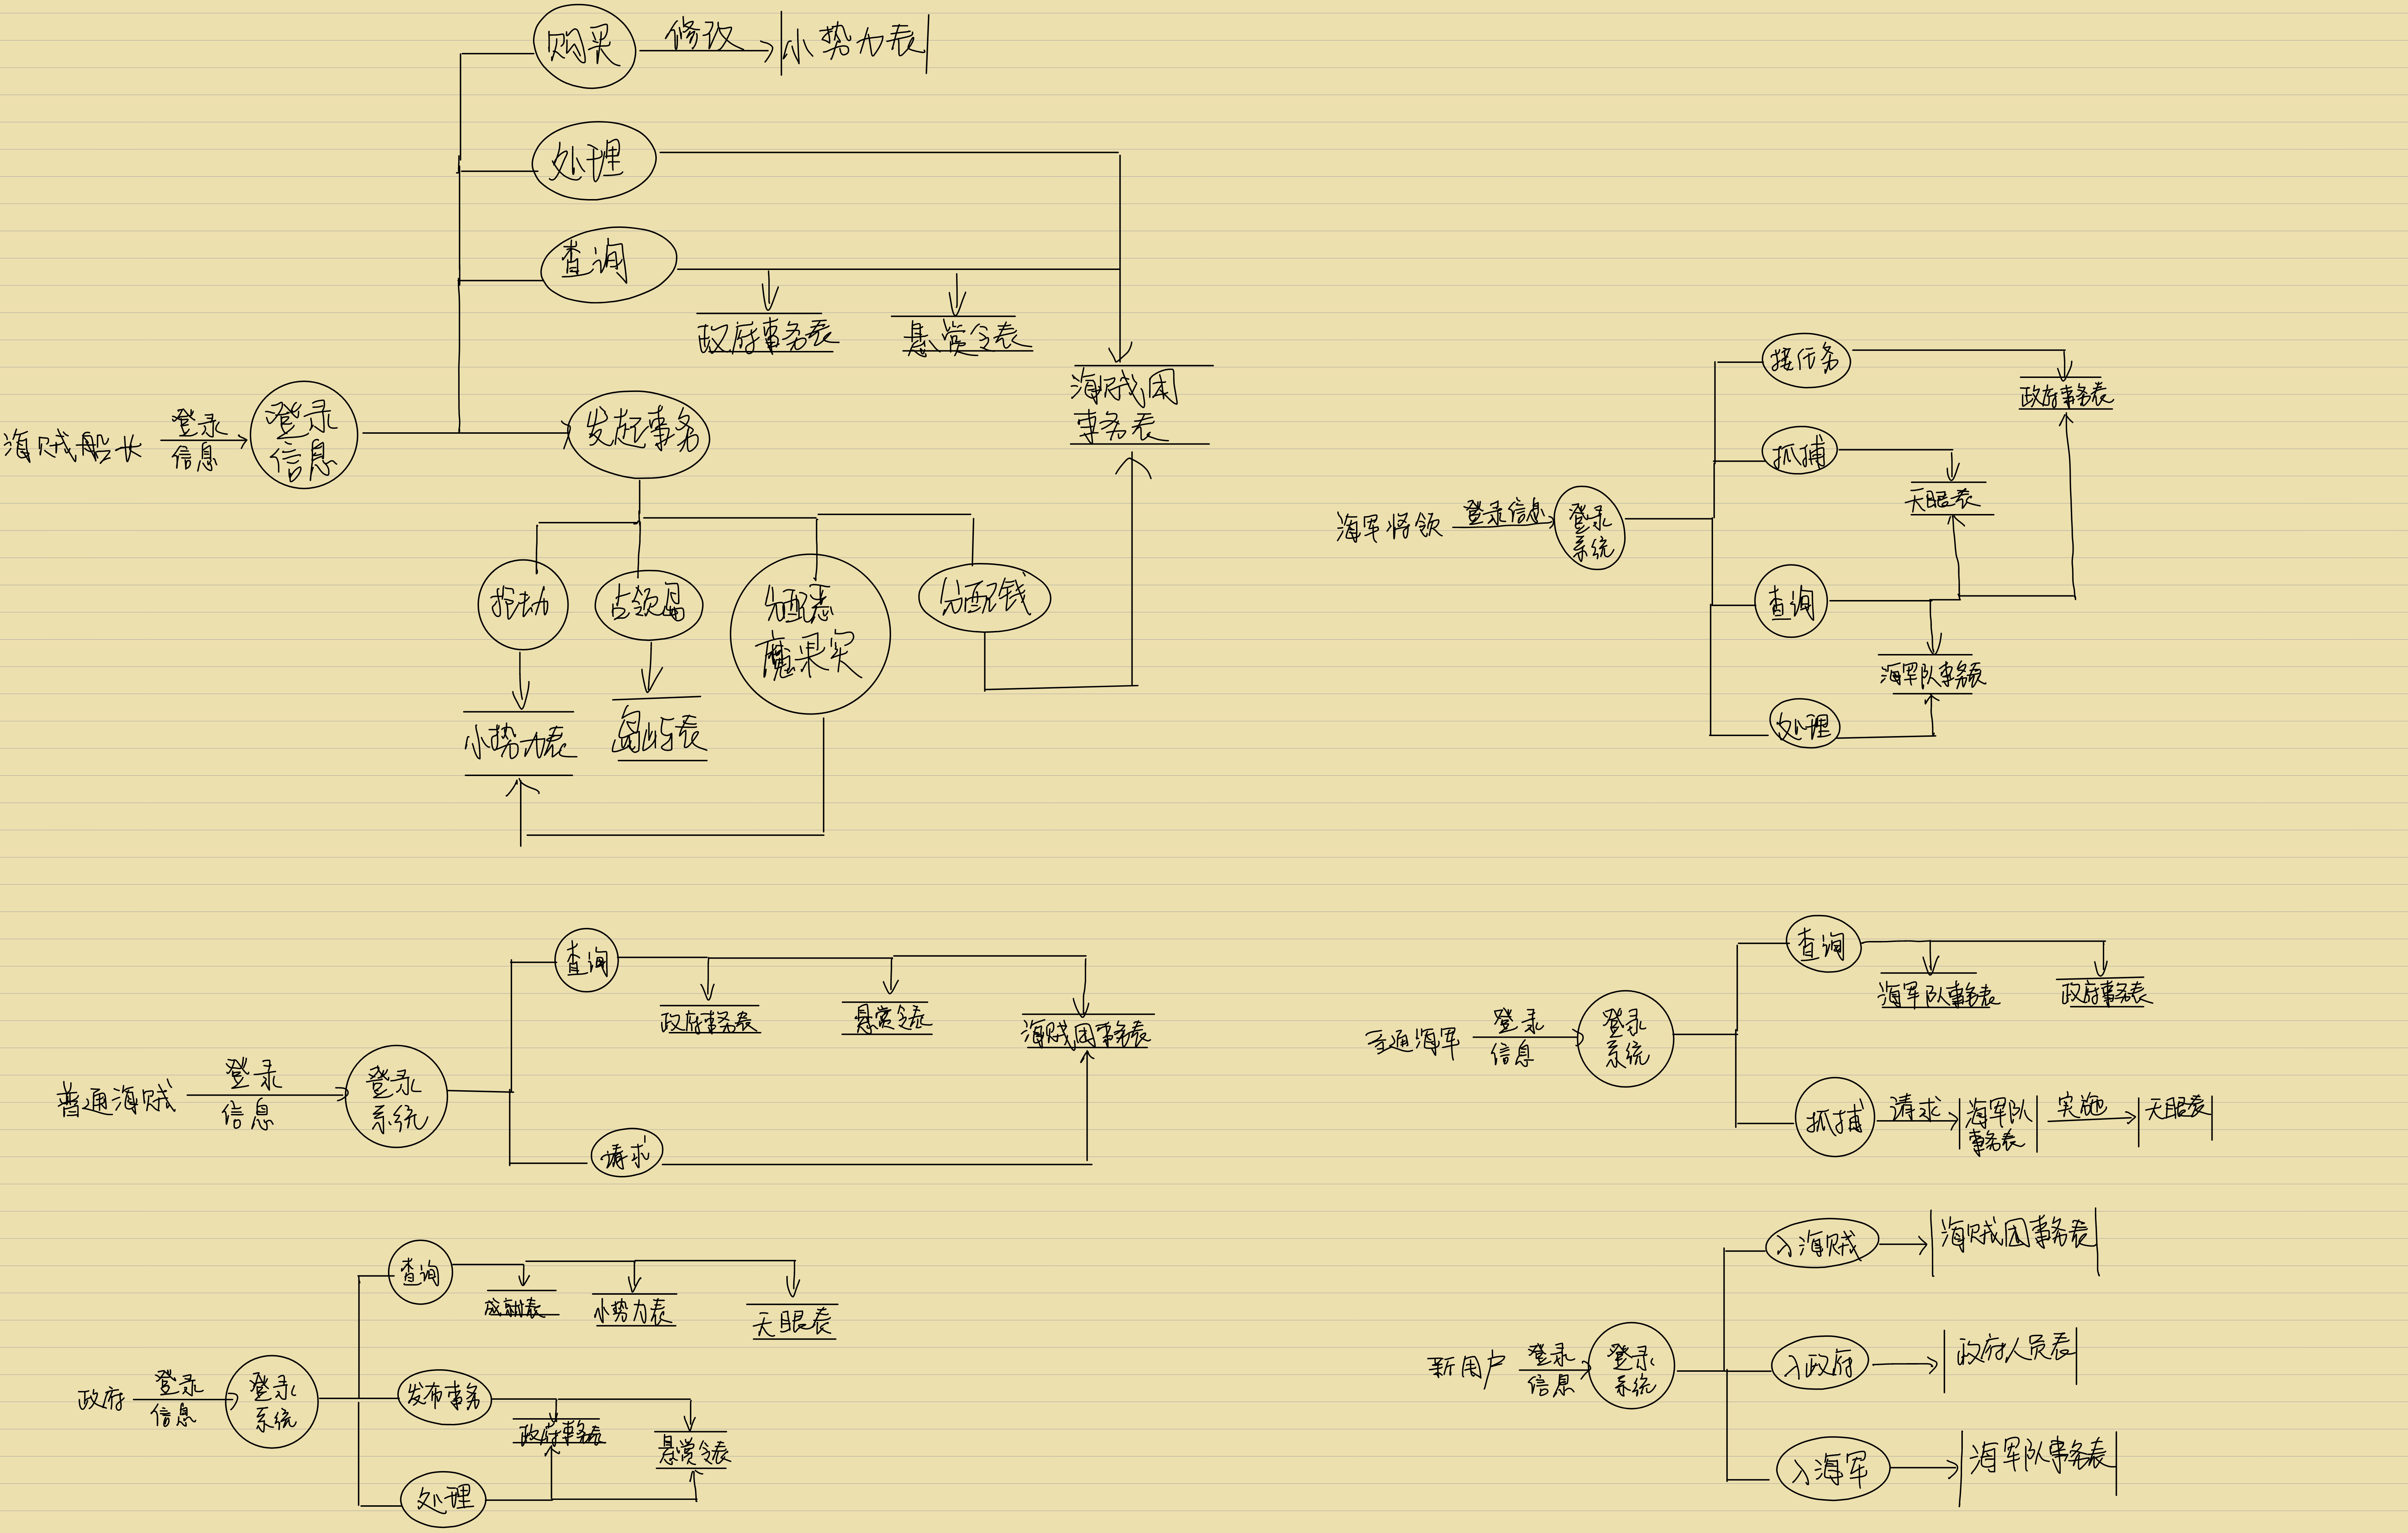 购买
修改
小势力表
处理
查询
政府事务表
悬赏令表
海贼团
事务表
海贼船长
登录
信息
登录
信息
发起事务
抢劫
占领岛
分配恶
魔果实
分配钱
小势力表
岛屿表
海军将领
登录信息
登录
系统
接任务
政府事务表
抓捕
天眼表
查询
海军队事务表
处理
普通海贼
登录
信息
登录
系统
查询
政府事务表
悬赏令表
海贼团事务表
请求
通海军
登录
信息
登录
系统
查询
海军队事务表
政府事务表
抓捕
请求
海军队
事务表
实施
天眼表
政府
登录
信息
登录
系统
查询
小势力表
天眼表
发布事务
政府事务表
悬赏令表
处理
新用户
登录
信息
登录
系统
入海贼
海贼团事务表
入政府
政府人员表
入海军
海军队事务表